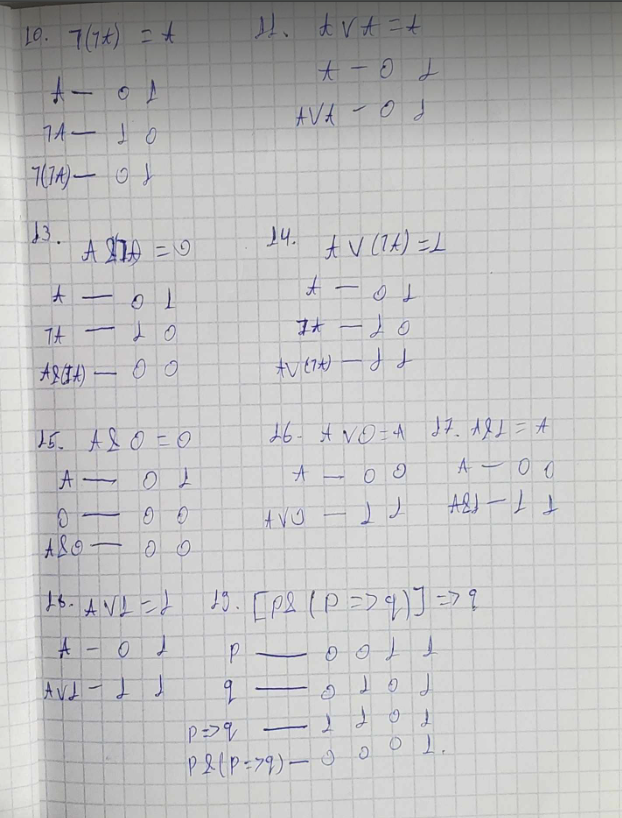 10. ˥(˥A) = A
A — 0 1
˥A — 1 0
˥(˥A) — 0 1
11. A ∨ A = A
A — 0 1
A∨A — 0 1
13. A&(˥A) = 0
A — 0 1
˥A — 1 0
A&(˥A) — 0 0
14. A ∨ (˥A) = 1
A — 0 1
˥A — 1 0
A∨(˥A) — 1 1
15. A & 0 = 0
A — 0 1
0 — 0 0
A&0 — 0 0
16. A ∨ 0 = A
A — 0 0
A∨0 — 1 1
17. A&1 = A
A — 0 0
A&1 — 1 1
18. A∨1 = 1
A — 0 1
A∨1 — 1 1
19. [p&(p => q)] => q
p — 0 0 1 1
q — 0 1 0 1
p=>q — 1 1 0 1
p&(p=>q) — 0 0 0 1.